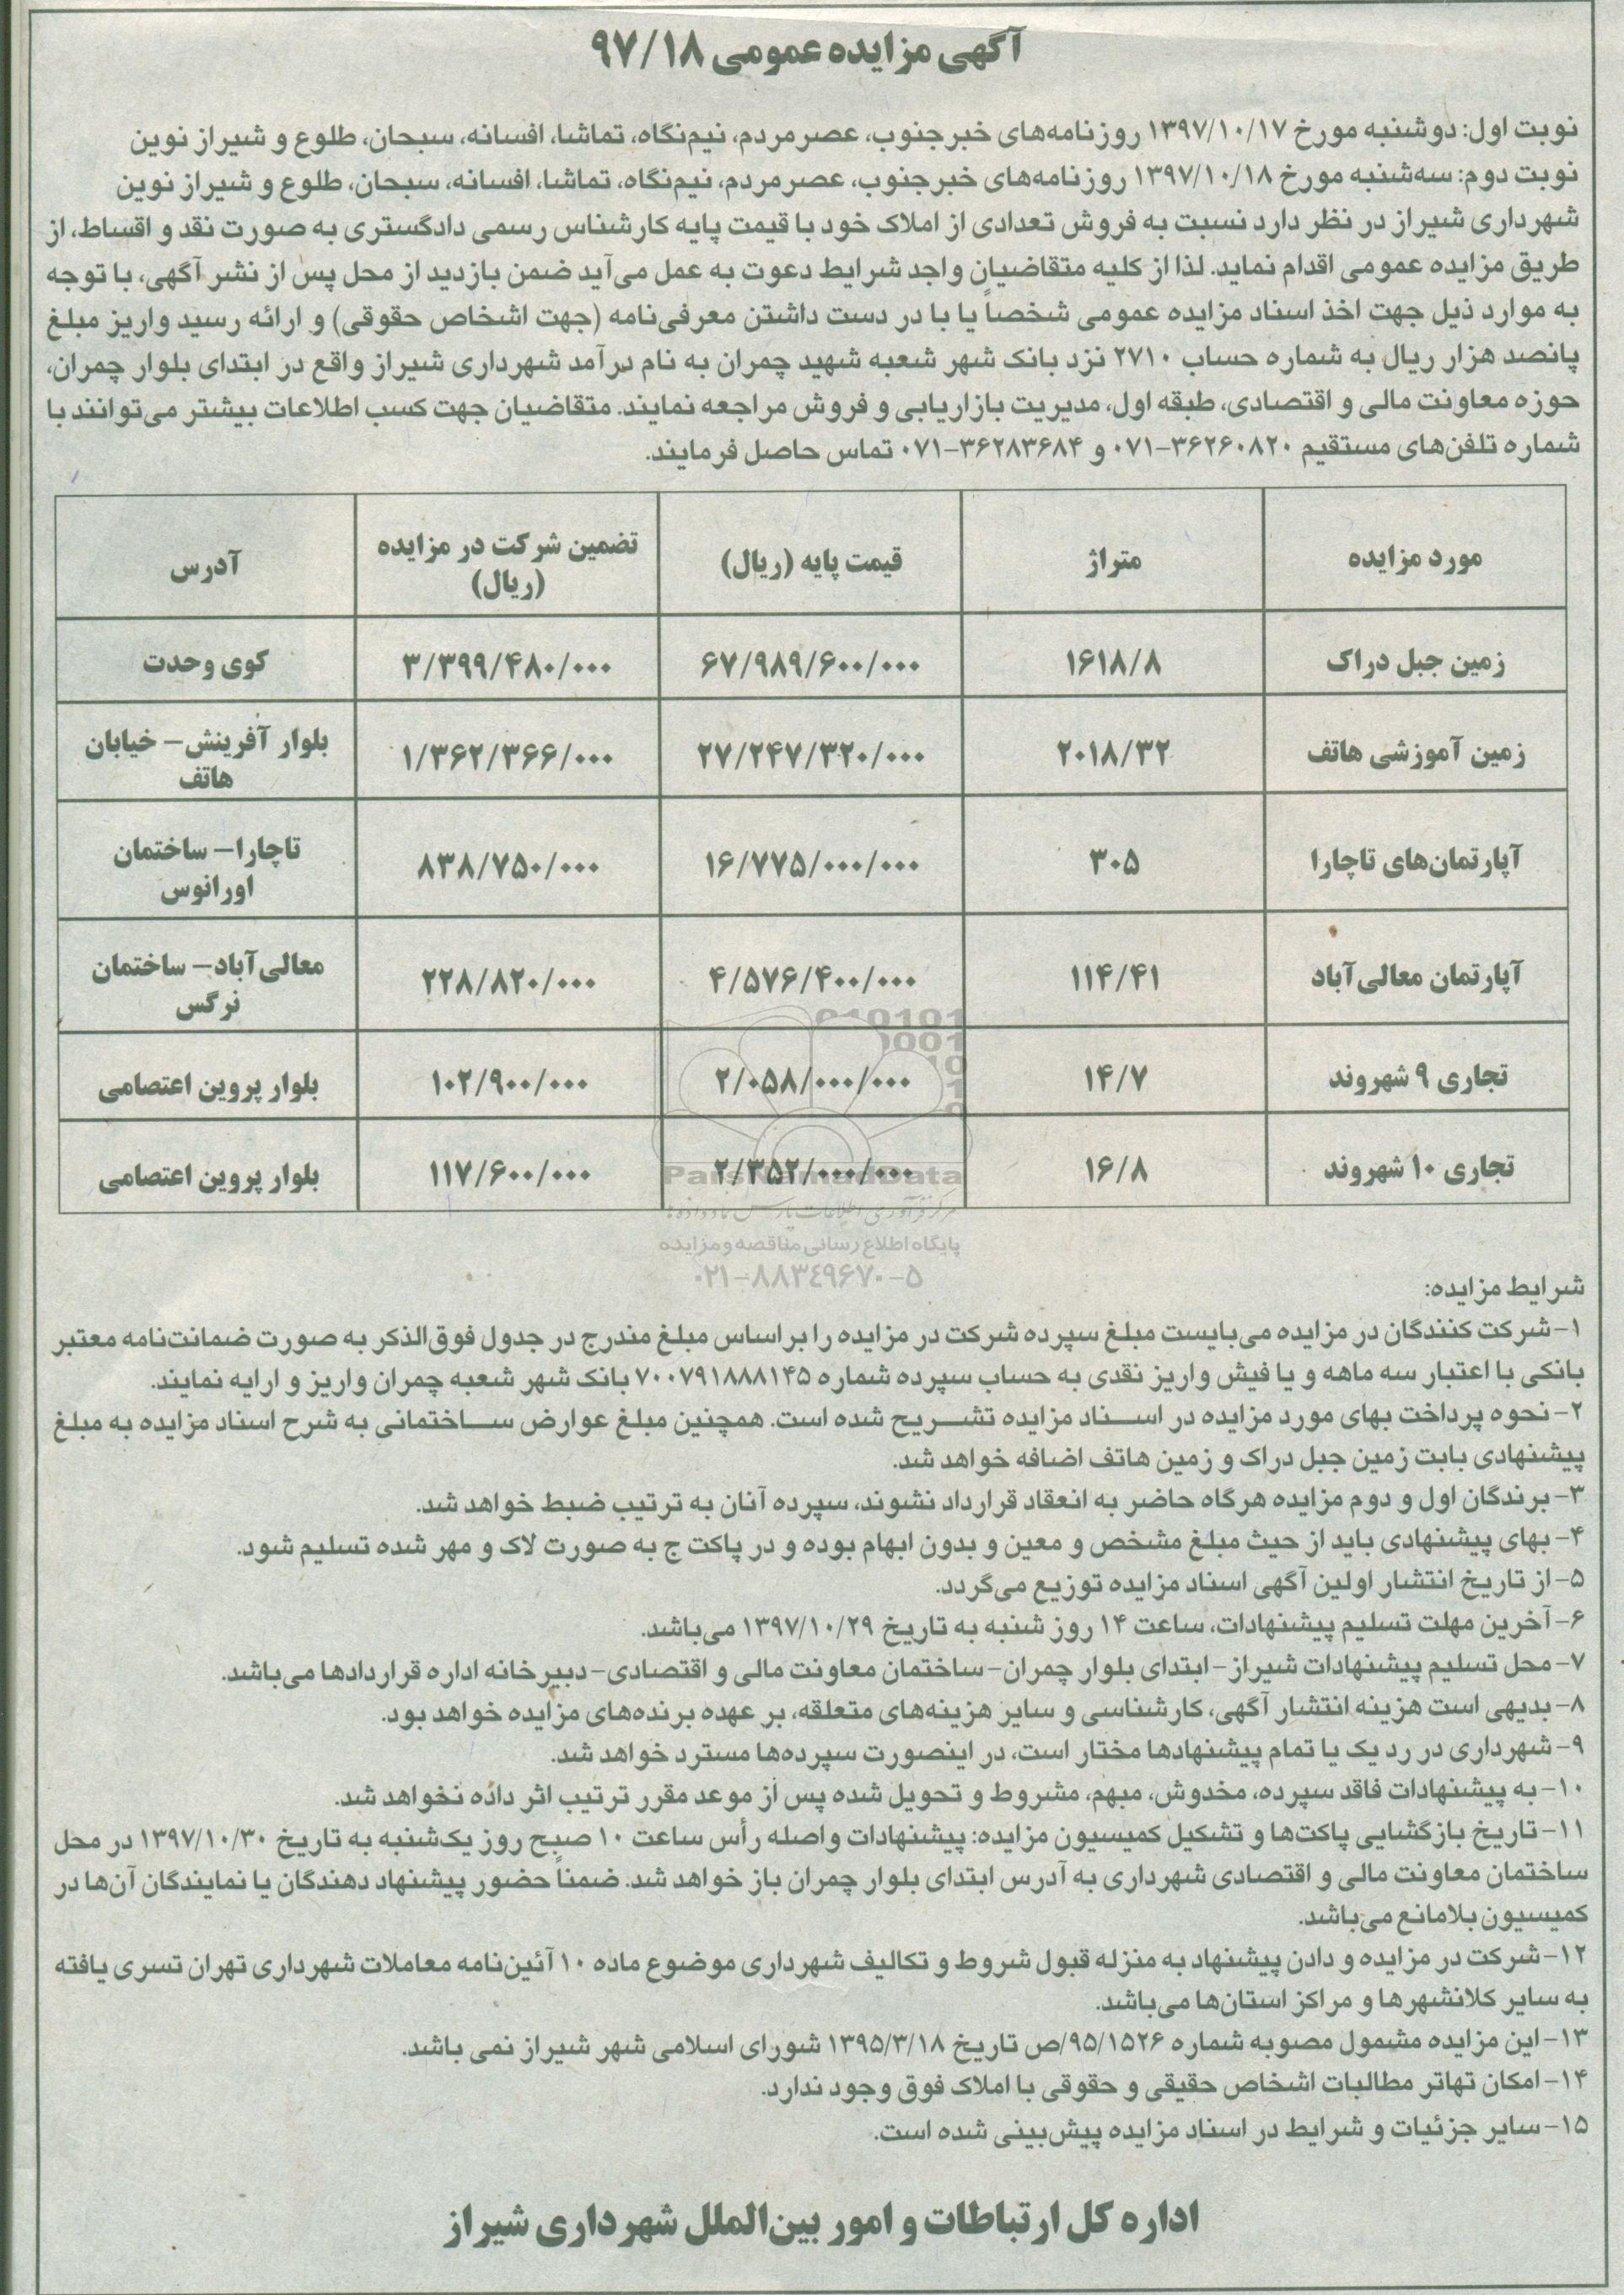 آگهی مزایده عمومی ۹۷/۱۸
نوبت اول: دوشنبه مورخ ۱۳۹۷/۱۰/۱۷ روزنامه‌های خبرجنوب، عصرمردم، نیم‌نگاه، تماشا، افسانه، سبحان، طلوع و شیراز نوین
نوبت دوم: سه‌شنبه مورخ ۱۳۹۷/۱۰/۱۸ روزنامه‌های خبرجنوب، عصرمردم، نیم‌نگاه، تماشا، افسانه، سبحان، طلوع و شیراز نوین
شهرداری شیراز در نظر دارد نسبت به فروش تعدادی از املاک خود با قیمت پایه کارشناس رسمی دادگستری به صورت نقد و اقساط، از
طریق مزایده عمومی اقدام نماید. لذا از کلیه متقاضیان واجد شرایط دعوت به عمل می‌آید ضمن بازدید از محل پس از نشر آگهی، با توجه
به موارد ذیل جهت اخذ اسناد مزایده عمومی شخصاً یا با در دست داشتن معرفی‌نامه (جهت اشخاص حقوقی) و ارائه رسید واریز مبلغ
پانصد هزار ریال به شماره حساب ۲۷۱۰ نزد بانک شهر شعبه شهید چمران به نام درآمد شهرداری شیراز واقع در ابتدای بلوار چمران،
حوزه معاونت مالی و اقتصادی، طبقه اول، مدیریت بازاریابی و فروش مراجعه نمایند. متقاضیان جهت کسب اطلاعات بیشتر می‌توانند با
شماره تلفن‌های مستقیم ۳۶۲۶۰۸۲۰-۰۷۱ و ۳۶۲۸۳۶۸۴-۰۷۱ تماس حاصل فرمایند.
مورد مزایده متراژ قیمت پایه (ریال) تضمین شرکت در مزایده (ریال) آدرس
زمین جبل دراک ۱۶۱۸/۸ ۶۷/۹۸۹/۶۰۰/۰۰۰ ۳/۳۹۹/۴۸۰/۰۰۰ کوی وحدت
زمین آموزشی هاتف ۲۰۱۸/۳۲ ۲۷/۲۴۷/۳۲۰/۰۰۰ ۱/۳۶۲/۳۶۶/۰۰۰ بلوار آفرینش- خیابان هاتف
آپارتمان‌های تاچارا ۳۰۵ ۱۶/۷۷۵/۰۰۰/۰۰۰ ۸۳۸/۷۵۰/۰۰۰ تاچارا- ساختمان اورانوس
آپارتمان معالی‌آباد ۱۱۴/۴۱ ۴/۵۷۶/۴۰۰/۰۰۰ ۲۲۸/۸۲۰/۰۰۰ معالی‌آباد- ساختمان نرگس
تجاری ۹ شهروند ۱۴/۷ ۲/۰۵۸/۰۰۰/۰۰۰ ۱۰۲/۹۰۰/۰۰۰ بلوار پروین اعتصامی
تجاری ۱۰ شهروند ۱۶/۸ ۲/۳۵۲/۰۰۰/۰۰۰ ۱۱۷/۶۰۰/۰۰۰ بلوار پروین اعتصامی
ParsNamadData
مرکز فرآوری اطلاعات پارس نماد داده ها
پایگاه اطلاع رسانی مناقصه و مزایده
۰۲۱-۸۸۳۴۹۶۷۰-۵
شرایط مزایده:
۱-شرکت کنندگان در مزایده می‌بایست مبلغ سپرده شرکت در مزایده را براساس مبلغ مندرج در جدول فوق‌الذکر به صورت ضمانت‌نامه معتبر
بانکی با اعتبار سه ماهه و یا فیش واریز نقدی به حساب سپرده شماره ۷۰۰۷۹۱۸۸۸۱۴۵ بانک شهر شعبه چمران واریز و ارایه نمایند.
۲- نحوه پرداخت بهای مورد مزایده در اسناد مزایده تشریح شده است. همچنین مبلغ عوارض ساختمانی به شرح اسناد مزایده به مبلغ
پیشنهادی بابت زمین جبل دراک و زمین هاتف اضافه خواهد شد.
۳- برندگان اول و دوم مزایده هرگاه حاضر به انعقاد قرارداد نشوند، سپرده آنان به ترتیب ضبط خواهد شد.
۴- بهای پیشنهادی باید از حیث مبلغ مشخص و معین و بدون ابهام بوده و در پاکت ج به صورت لاک و مهر شده تسلیم شود.
۵- از تاریخ انتشار اولین آگهی اسناد مزایده توزیع می‌گردد.
۶- آخرین مهلت تسلیم پیشنهادات، ساعت ۱۴ روز شنبه به تاریخ ۱۳۹۷/۱۰/۲۹ می‌باشد.
۷- محل تسلیم پیشنهادات شیراز- ابتدای بلوار چمران- ساختمان معاونت مالی و اقتصادی- دبیرخانه اداره قراردادها می‌باشد.
۸- بدیهی است هزینه انتشار آگهی، کارشناسی و سایر هزینه‌های متعلقه، بر عهده برنده‌های مزایده خواهد بود.
۹- شهرداری در رد یک یا تمام پیشنهادها مختار است، در اینصورت سپرده‌ها مسترد خواهد شد.
۱۰- به پیشنهادات فاقد سپرده، مخدوش، مبهم، مشروط و تحویل شده پس از موعد مقرر ترتیب اثر داده نخواهد شد.
۱۱- تاریخ بازگشایی پاکت‌ها و تشکیل کمیسیون مزایده: پیشنهادات واصله رأس ساعت ۱۰ صبح روز یک‌شنبه به تاریخ ۱۳۹۷/۱۰/۳۰ در محل
ساختمان معاونت مالی و اقتصادی شهرداری به آدرس ابتدای بلوار چمران باز خواهد شد. ضمناً حضور پیشنهاد دهندگان یا نمایندگان آن‌ها در
کمیسیون بلامانع می‌باشد.
۱۲- شرکت در مزایده و دادن پیشنهاد به منزله قبول شروط و تکالیف شهرداری موضوع ماده ۱۰ آئین‌نامه معاملات شهرداری تهران تسری یافته
به سایر کلانشهرها و مراکز استان‌ها می‌باشد.
۱۳- این مزایده مشمول مصوبه شماره ۹۵/۱۵۲۶/ص تاریخ ۱۳۹۵/۳/۱۸ شورای اسلامی شهر شیراز نمی باشد.
۱۴- امکان تهاتر مطالبات اشخاص حقیقی و حقوقی با املاک فوق وجود ندارد.
۱۵- سایر جزئیات و شرایط در اسناد مزایده پیش‌بینی شده است.
اداره کل ارتباطات و امور بین‌الملل شهرداری شیراز